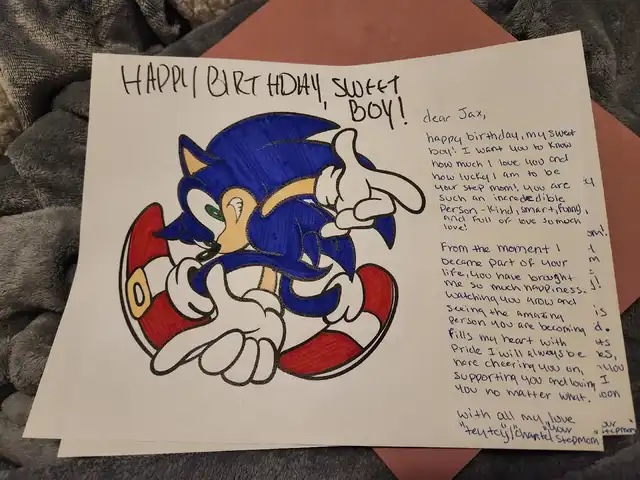 HAPPY BIRTHDAY, SWEET
BOY!
dear Jax,
happy birthday, my sweet
boy! I want you to know
how much I love you and
how lucky I am to be
your step mom! you are
such an incredible
person - kind, smart, funny,
and full of love so much
love!
From the moment I
became part of your
life, you have brought
me so much happiness.
Watching you grow and
seeing the amazing
person you are becoming
fills my heart with
pride I will always be
here cheering you on,
supporting you and loving
you no matter what.
with all my love
"teytey"/chantel your
stepmom